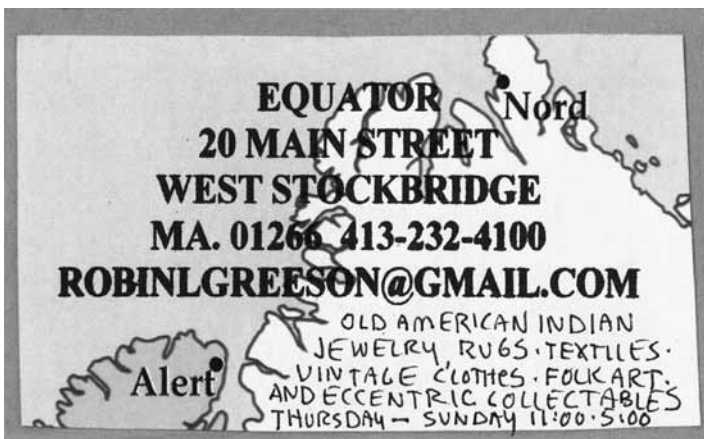 EQUATOR
Nord
20 MAIN STREET
WEST STOCKBRIDGE
MA. 01266 413-232-4100
ROBINLGREESON@GMAIL.COM
OLD AMERICAN INDIAN
JEWELRY, RUGS · TEXTILES ·
VINTAGE CLOTHES · FOLK ART ·
AND ECCENTRIC COLLECTABLES
THURSDAY - SUNDAY 11:00 · 5:00
Alert